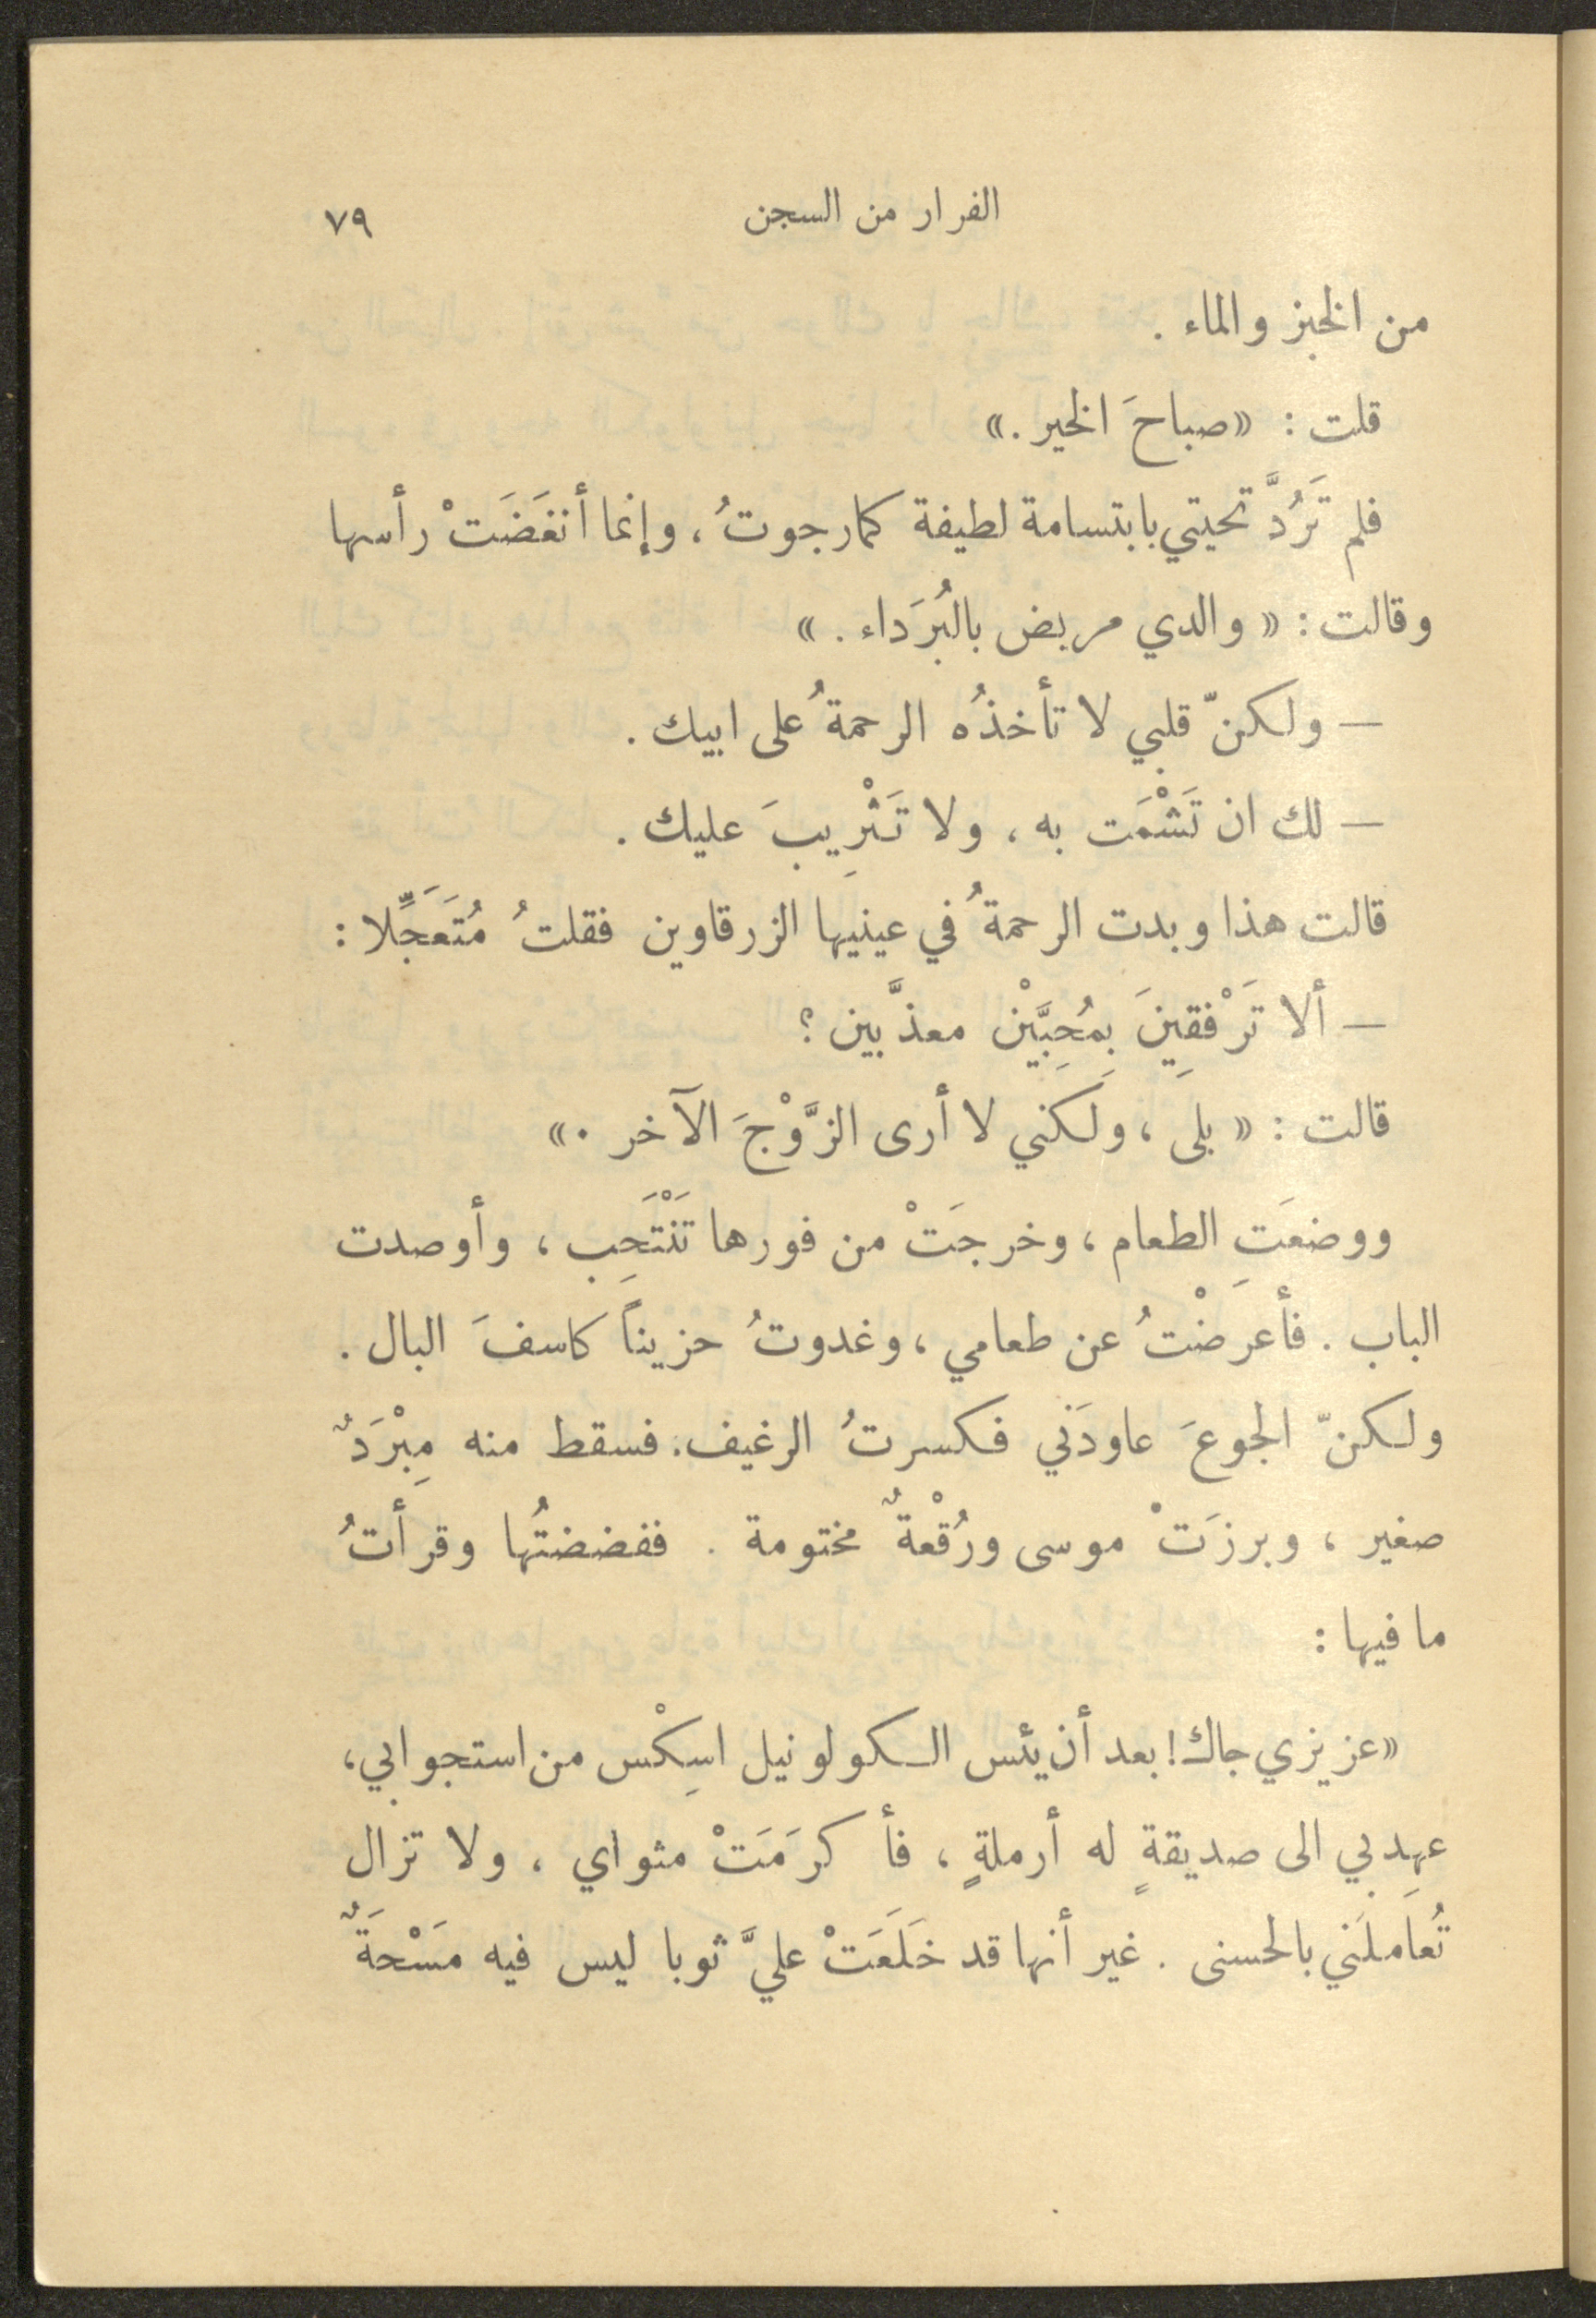 الفرار من السجن ٧٩
من الخبز والماء .
قلت : «صباحَ الخير .»
فلم تَرُدَّ تحيتي بابتسامة لطيفة كما رجوتُ ، وإنما أنغَضَتْ رأسها
وقالت : « والدي مريض بالبُرَداء . »
— ولكنّ قلبي لا تأخذُه الرحمةُ على ابيك .
— لك ان تَشْمَت به ، ولا تَثْرِيبَ عليك .
قالت هذا وبدت الرحمةُ في عينيها الزرقاوين فقلتُ مُتَعَجِّلا :
— ألا تَرْفقِينَ بِمُحِبَّيْن معذَّبين ؟
قالت : « بلى ، ولكني لا أرى الزَّوْجَ الآخر . »
ووضعَتِ الطعام ، وخرجَتْ من فورها تَنْتَحِب ، وأوصدت
الباب . فأعرَضْتُ عن طعامي ، وغدوتُ حزيناً كاسفَ البال .
ولكنّ الجوعَ عاودَني فكسرتُ الرغيف . فسقط منه مِبْرَدٌ
صغير ، وبرزَتْ موسى ورُقْعةٌ مختومة . ففضضتُها وقرأتُ
ما فيها :
«عزيزي جاك! بعد أن يئس الكولونيل اسِكْس من استجوابي ،
عهِد بي الى صديقةٍ له أرملةٍ ، فأكرَمَتْ مثواي ، ولا تزال
تُعامَلَني بالحسنى . غير أنها قد خَلَعَتْ عليَّ ثوبا ليس فيه مَسْحَةٌ